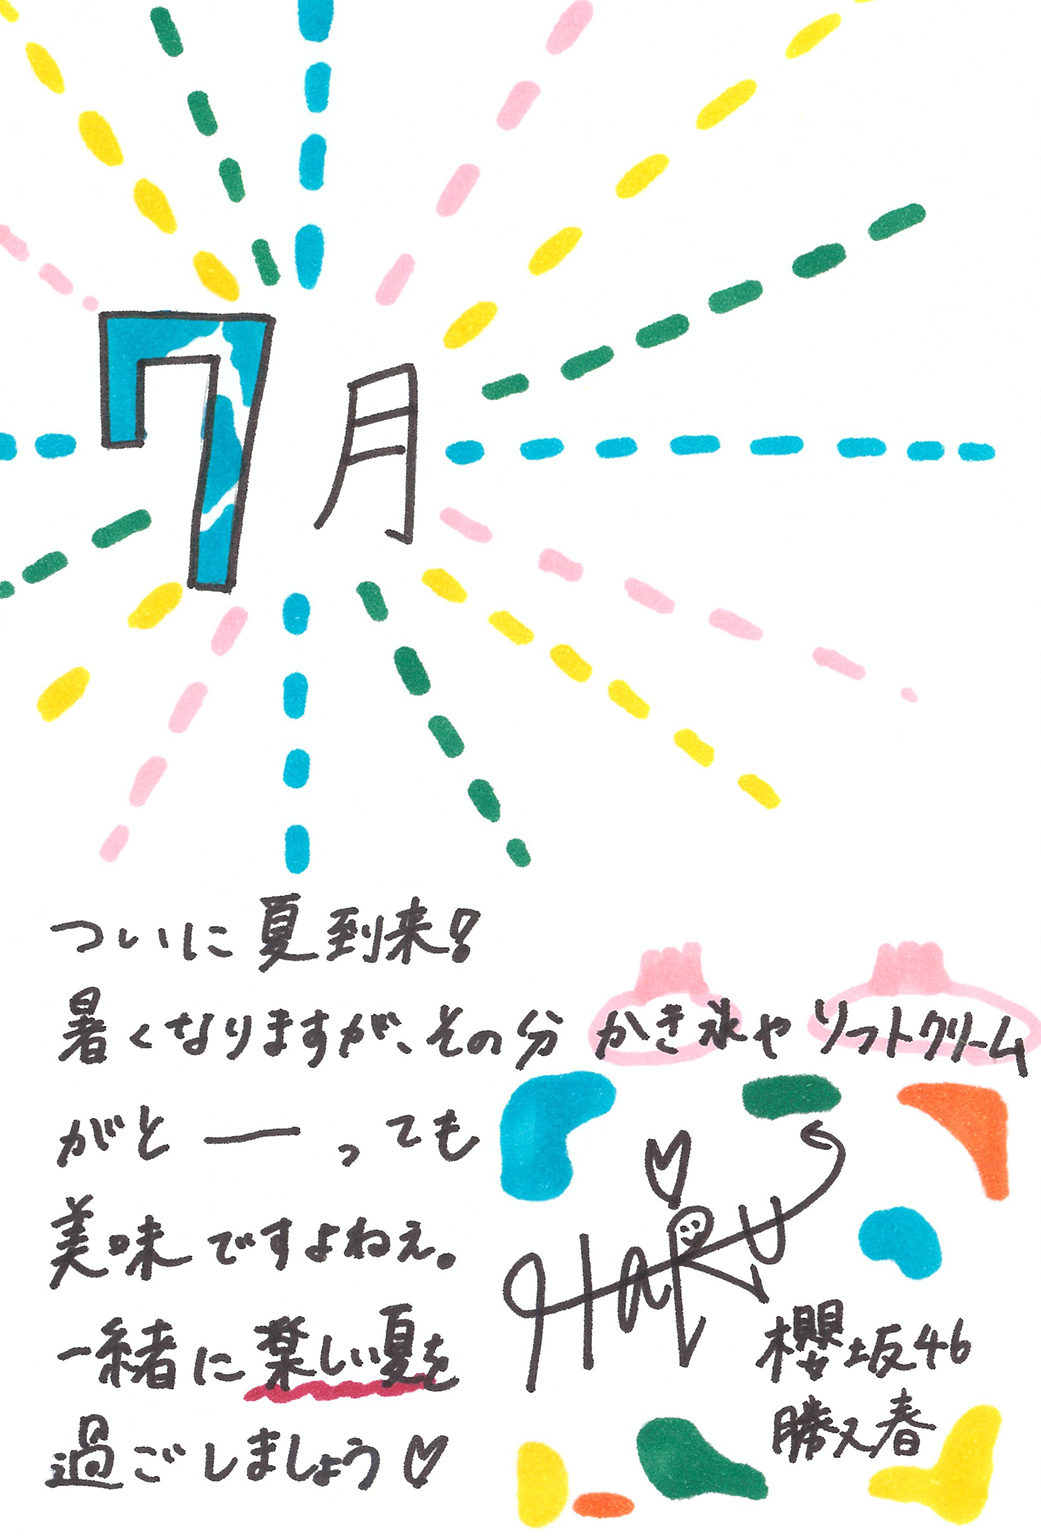 7月
ついに夏到来!
暑くなりますが、その分 かき氷や ソフトクリーム
がと──っても
美味ですよねぇ。
一緒に楽しい夏を
過ごしましょう♡
♡
HARU
櫻坂46
勝又春